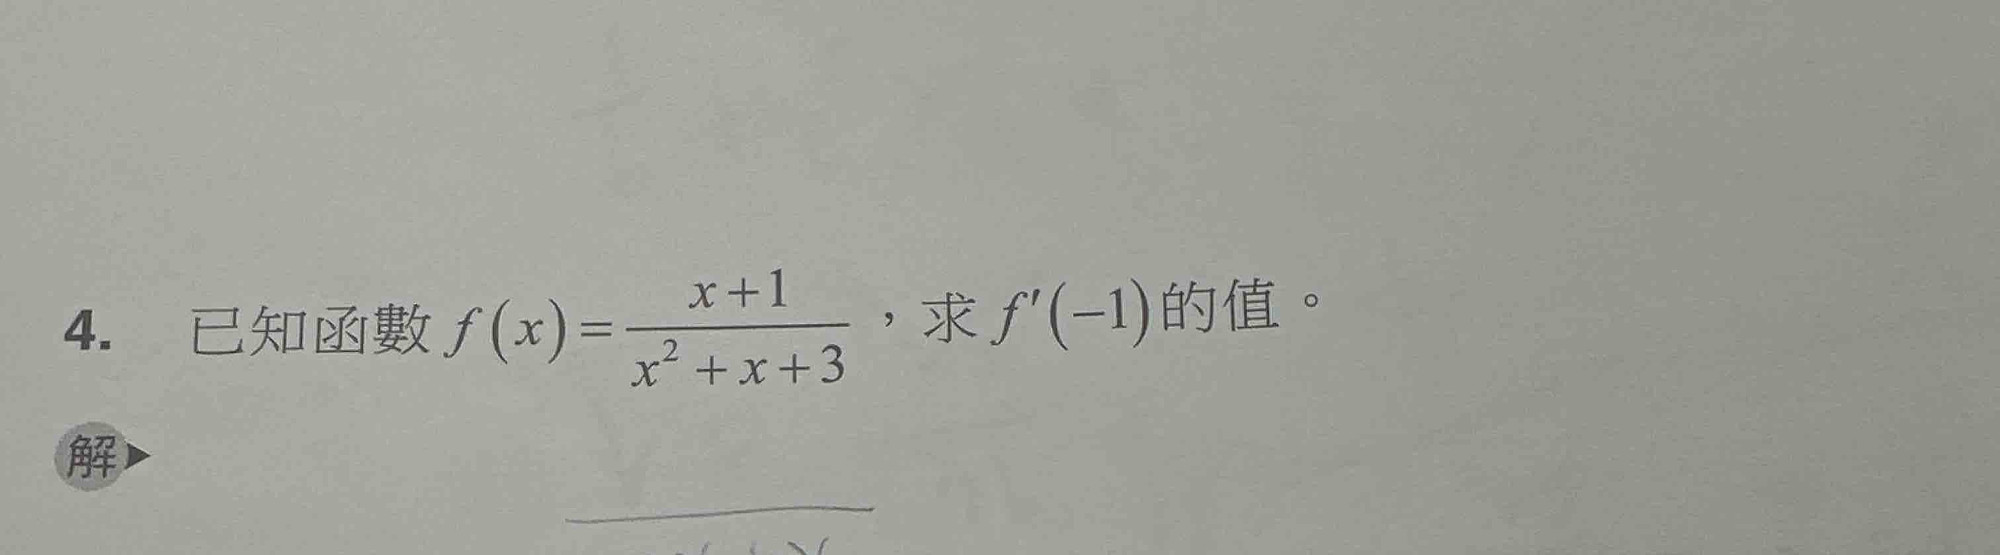 4. 已知函數 f(x) = \frac{x+1}{x^2+x+3}，求 f'(-1) 的值。
解▶